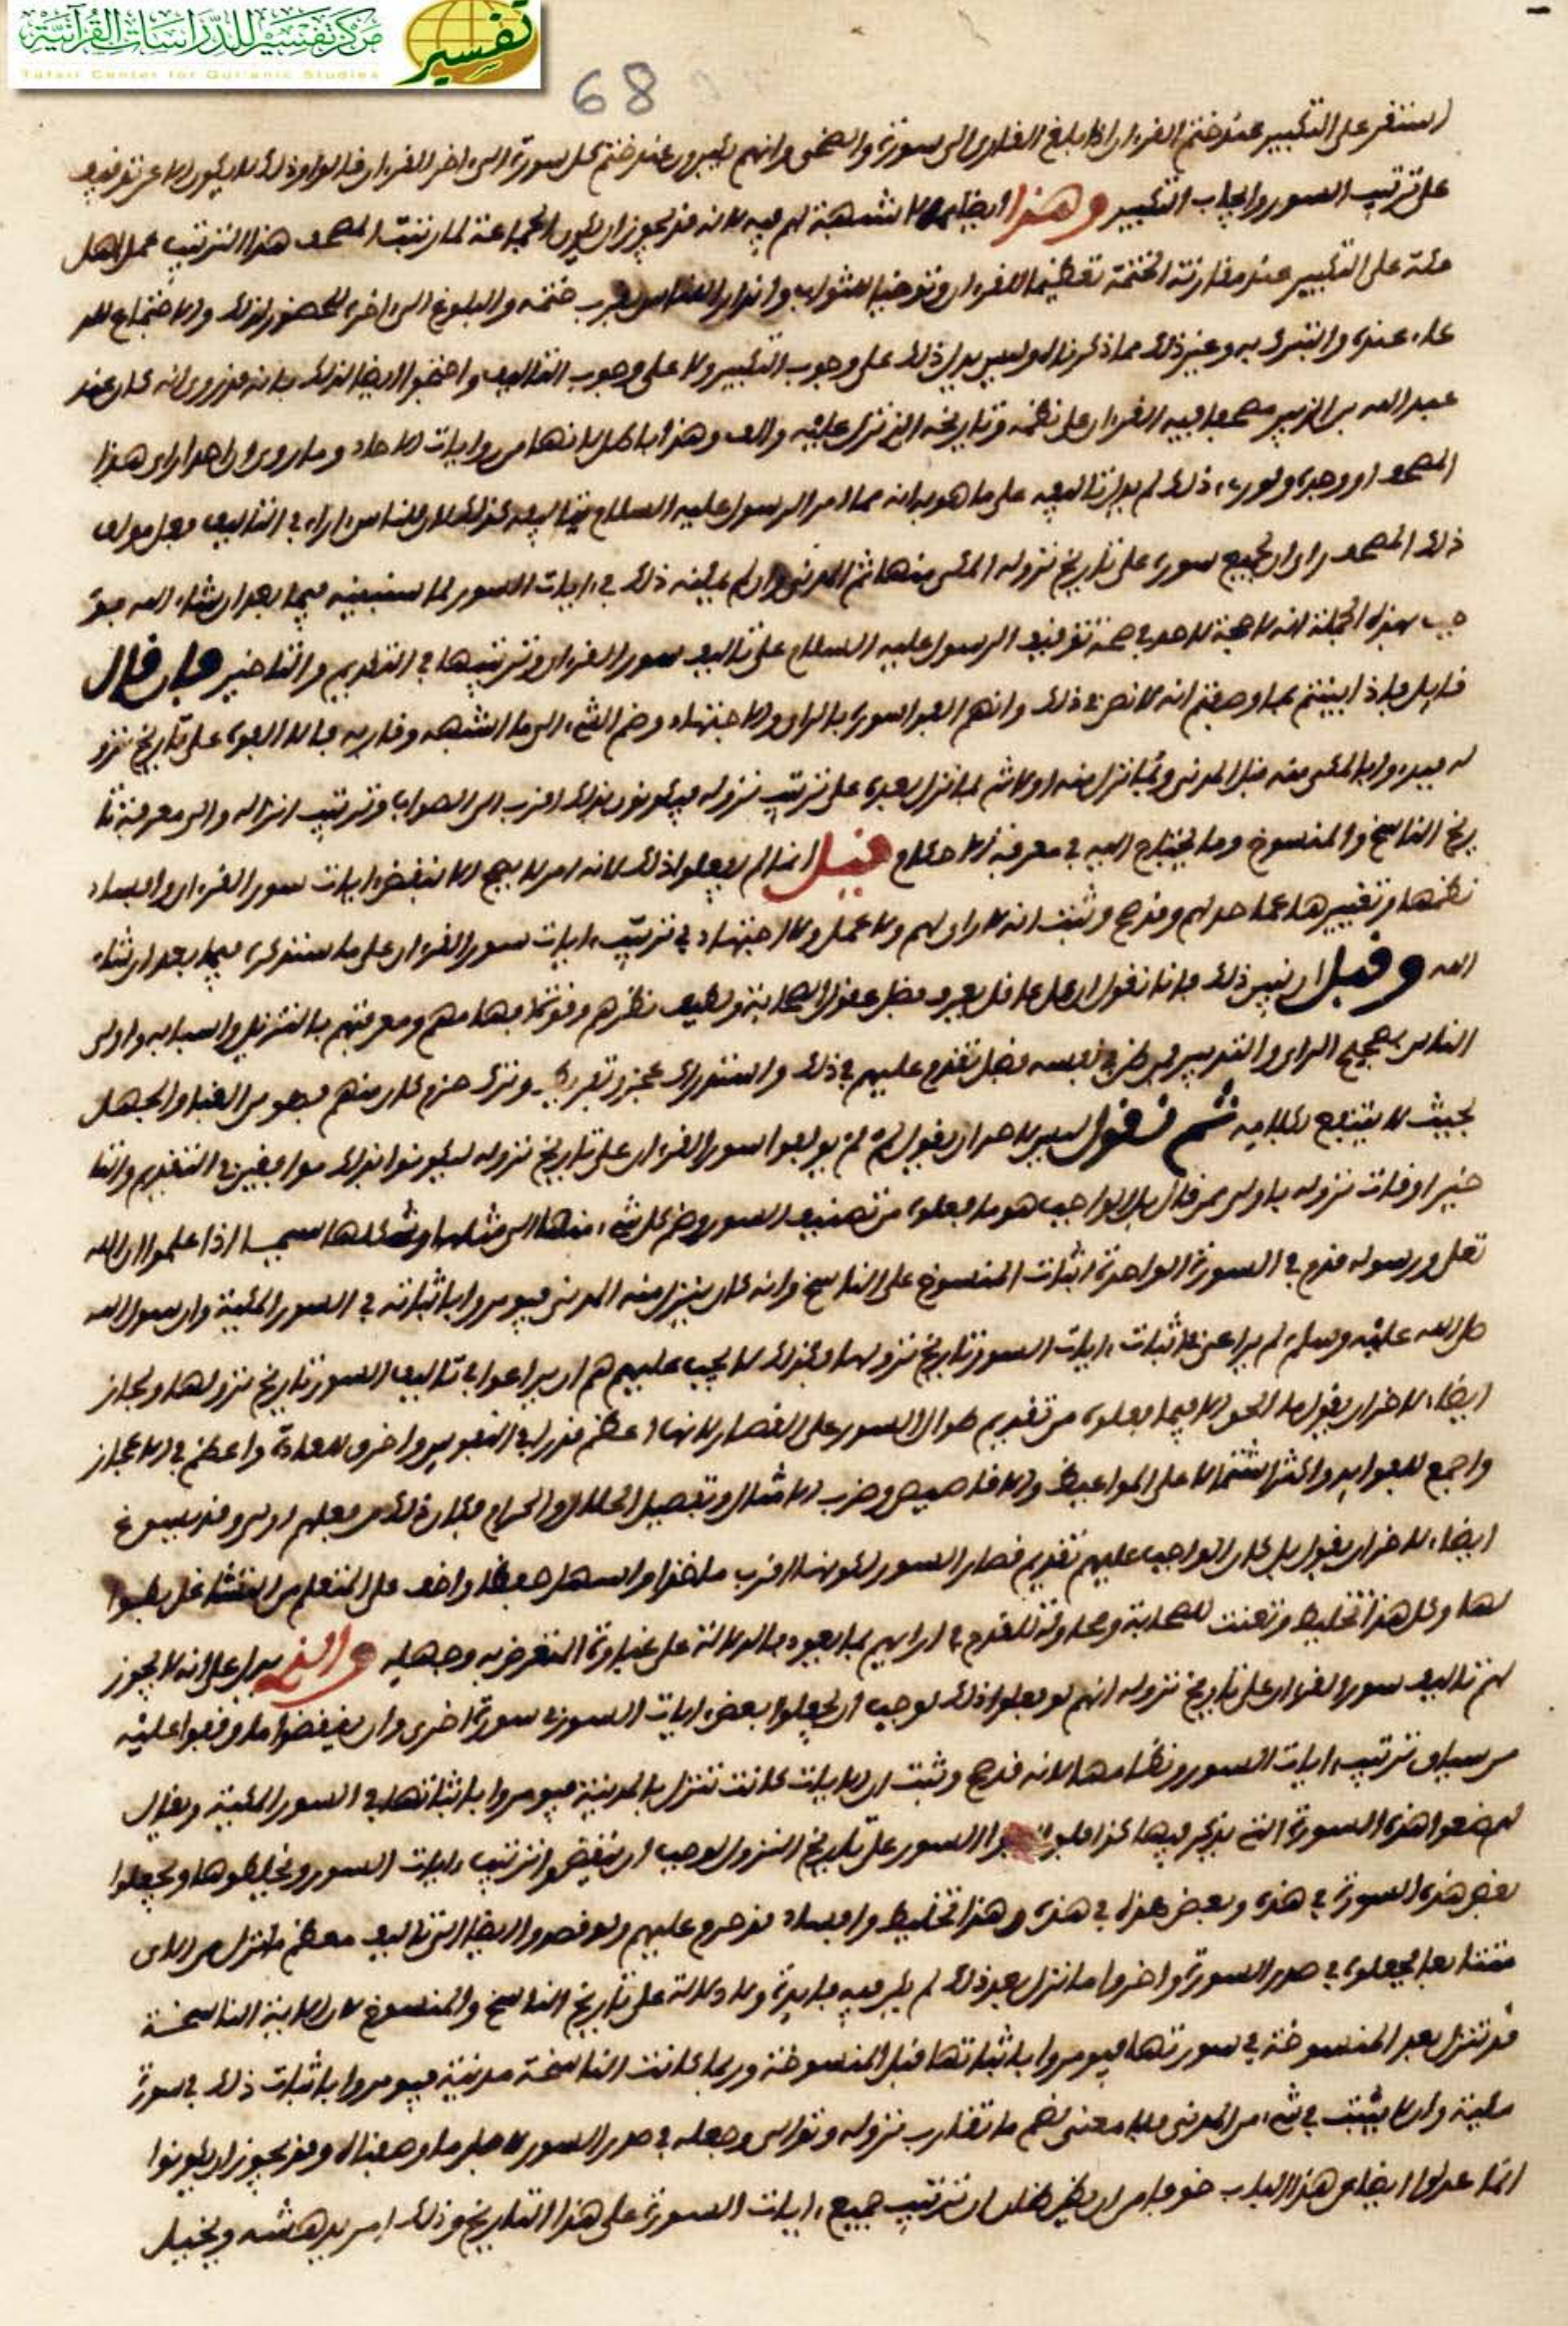 مركز تفسير للدراسات القرآنية
Tafsir Center for Qur'anic Studies
تفسير
68
استقر على التكبير عند ختم القرءان اذا بلغ القارى الى سورة والضحى وانهم يكبرون عند ختم كل سورة الى اخر القرءان قالوا وذلك لا يكون الا عن توقيف
على ترتيب السور وايجاب التكبير وهذا ايضا مما لا شبهة لهم فيه لانه قد يجوز ان يكون الجماعة لما رتبت المصحف هذا الترتيب عمل اهل
مكة على التكبير عند مقاربة الختمة تعظيما للقرءان وتوخيا للثواب وانذارا للناس بقرب ختمه والبلوغ الى اخره للحضور لذلك والاجتماع للد
عاء عنده والتبرك به وغير ذلك مما ذكرناه وليس يدل ذلك على وجوب التكبير ولا على وجوب التاليف واحتجوا ايضا لذلك بانه قد روى انه كان عند
عبد الله بن الزبير مصحف فيه القرءان على نظمه وتاريخه الذى نزل عليه والف وهذا باطل لانها من روايات الاحاد وما روى ان احدا راى هذا
المصحف او وجده ولو رءى ذلك لم يدل تاليفه على ما هو به انه مما امر الرسول عليه السلام بتاليفه كذلك لان للناس ءاراء فى التاليف فلعل مولف
ذلك المصحف راى ان يجمع سوره على تاريخ نزوله المكى منها ثم المدنى وان لم يمكنه ذلك فى ءايات السور لما سنبينه فيما بعد ان شاء الله فو
جب بهذه الجملة انه لا حجة لاحد فى صحة توقيف الرسول عليه السلام على تاليف سور القرءان وترتيبها فى التقديم والتاخير فان قال
قايل فاذا بينتم بما وصفتم انه لا نص فى ذلك وانهم الفوا سوره بالراى والاجتهاد وضم الشىء الى ما اشبهه وقاربه فالا الفوه على تاريخ نزو
له فبدءوا بالمكى منه قبل المدنى وبما نزل منه اولا ثم بما نزل بعده على ترتيب نزوله فيكونون بذلك اقرب الى الصواب وترتيب انزاله والى معرفة تا
ريخ الناسخ والمنسوخ وما يحتاج اليه فى معرفة الاحكام قيل انما لم يفعلوا ذلك لانه امر لا يصح الا بنقض ءايات سور القرءان وافساد
نظمها وتغييرها عما حد لهم وقد صح وثبت انه لا راى لهم ولا عمل ولا اجتهاد فى ترتيب ءايات سور القرءان على ما سنذكره فيما بعد ان شاء
الله وقبل ان نبين ذلك فانا نقول ان كل عاقل يعرف فضل عقول الصحابة ولطيف نظرهم وقوة افهامهم ومعرفتهم بالتنزيل واسبابه وانهم اولى
الناس بصحيح الراى والتدبير فمن ظن فى نفسه فضل تقدم عليهم فى ذلك واستدراك عجز وتفريط وترك حزم كان منهم فهو من الغباوة والجهل
بحيث لا ينتفع بكلامه ثم نقول ليس لاحد ان يقول لم لم يولفوا سور القرءان على تاريخ نزوله ليكونوا بذلك موافقين فى التقديم والتا
خير اوقات نزوله باولى ممن قال بل الواجب هو ما فعلوه من تصنيف السور وضم كل شىء منها الى مثلها وشكلها سيما اذا علموا ان الله
تعلى ورسوله قدم فى السورة الواحدة اثبات المنسوخ على الناسخ وانه كان ينزل منه المدنى فيومروا باثباته فى السور المكية وان رسول الله
صلى الله عليه وسلم لم يراعى فى اثبات ءايات السور تاريخ نزولها فكذلك لا يجب عليهم هم ان يراعوا فى تاليف السور تاريخ نزولها ولجاز
ايضا لاخر ان يقول ما الحق الا فيما فعلوه من تقديم طوال السور على القصار لانها اعظم قدرا فى النفوس واخرق للعادة واعظم فى الاعجاز
واجمع للفوايد واكثر اشتمالا على المواعيظ والاقاصيص وضرب الامثال وتفصيل الحلال والحرام فكان ذلك من فعلهم اولى وقد يسوغ
ايضا لاخر ان يقول بل كان الواجب عليهم تقديم قصار السور لكونها اقرب ماخذا واسهل حفظا واخف على المتعلم من التشاغل بطوا
لها وكل هذا تخليط وتعنت للصحابة ومحاولة للقدح فى ارايهم بما يعود بالدلالة على غباوة المتعرض به وجهله والذى يدل على انه لا يجوز
لهم تاليف سور القرءان على تاريخ نزوله انهم لو فعلوا ذلك لوجب ان يجعلوا بعض ءايات السور فى سورة اخرى وان ينقضوا ما وقفوا عليه
من سياق ترتيب ءايات السور ونظامها لانه قد صح وثبت ان الايات كانت تنزل بالمدينة فيومروا باثباتها فى السور المكية ويقال
لهم ضعوا هذه السورة التى يذكر فيها كذا فلو السور على تاريخ النزول لوجب ان ينقضوا ترتيب ءايات السور ويخلطوها ويجعلوا
بعض هذه السورة فى هذه وبعض هذه فى هذه وهذا تخليط وافساد قد حرم عليهم ولو قصدوا ايضا الى تاليف معظم ما نزل من الاى
متتابعا فجعلوه فى صدر السورة واخروا ما نزل بعد ذلك لم يكن فيه فايدة ولا دلالة على تاريخ الناسخ والمنسوخ لان الاية الناسخة
قد تنزل بعد المنسوخة فى سورتها فيومروا باثباتها قبل المنسوخة وربما كانت الناسخة مدنية فيومروا باثبات ذلك فى سورة
مكية وان لا يثبت فى شىء من المدنى فلا معنى لضم ما تقارب نزوله وتوالى وجعله فى صدر السور لاجل ما وصفناه وقد يجوز ان يكونوا
انما عدلوا ايضا عن هذا الباب خوفا من ان يظن ظان ان ترتيب جميع ءايات السورة على هذا التاريخ وذلك امر يدهش ويخيل